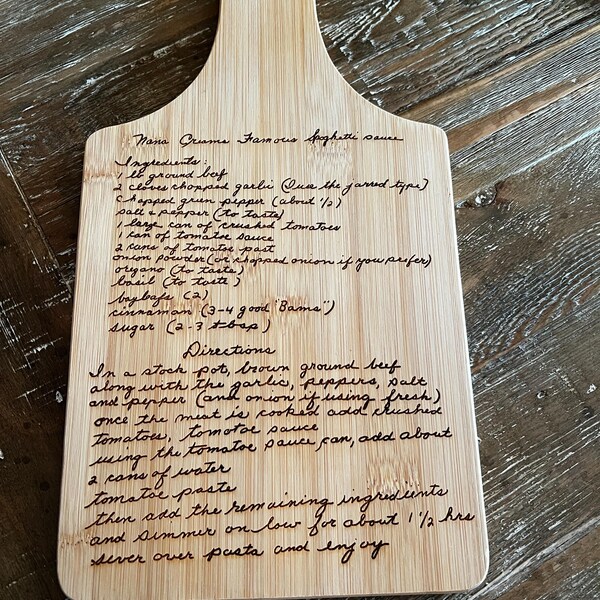 Nana Greams Famous Spaghetti sauce
Ingredients:
1 lb ground beef
2 cloves chopped garlic (I use the jarred type)
chopped green pepper (about 1/2)
salt & pepper (to taste)
1 large can of crushed tomatoes
1 can of tomatoe sauce
2 cans of tomatoe past
onion powder (or chopped onion if you prefer)
oregano (to taste)
basil (to taste)
bay leafs (2)
cinnaman (3-4 good "Bams")
sugar (2-3 tbsp)
Directions
In a stock pot, brown ground beef
along with the garlic, peppers, salt
and pepper (and onion if using fresh)
once the meat is cooked add crushed
tomatoes, tomatoe sauce
using the tomatoe sauce can, add about
2 cans of water
tomatoe paste
then add the remaining ingredients
and simmer on low for about 1 1/2 hrs
sever over pasta and enjoy